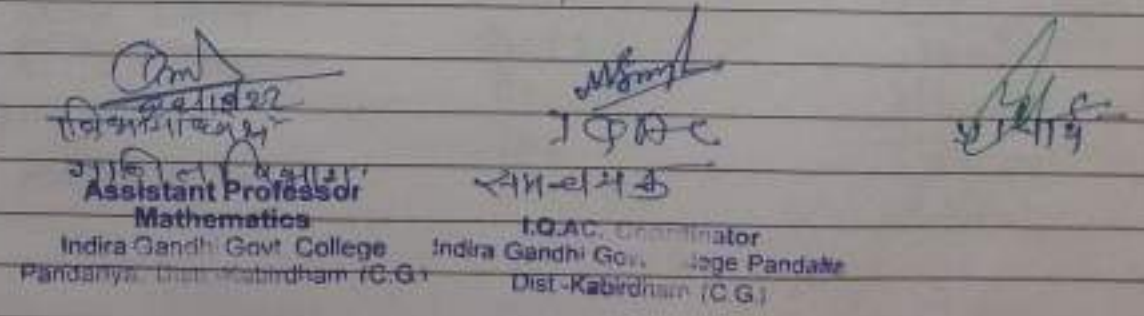 विभागाध्यक्ष
गणित विभाग
Assistant Professor
Mathematics
Indira Gandhi Govt College
Pandariya, Distt-Kabirdham (C.G.)
IQAC
समन्वयक
I.Q.AC. Coordinator
Indira Gandhi Gov. Pandaria
Dist-Kabirdham (C.G.)
प्राचार्य